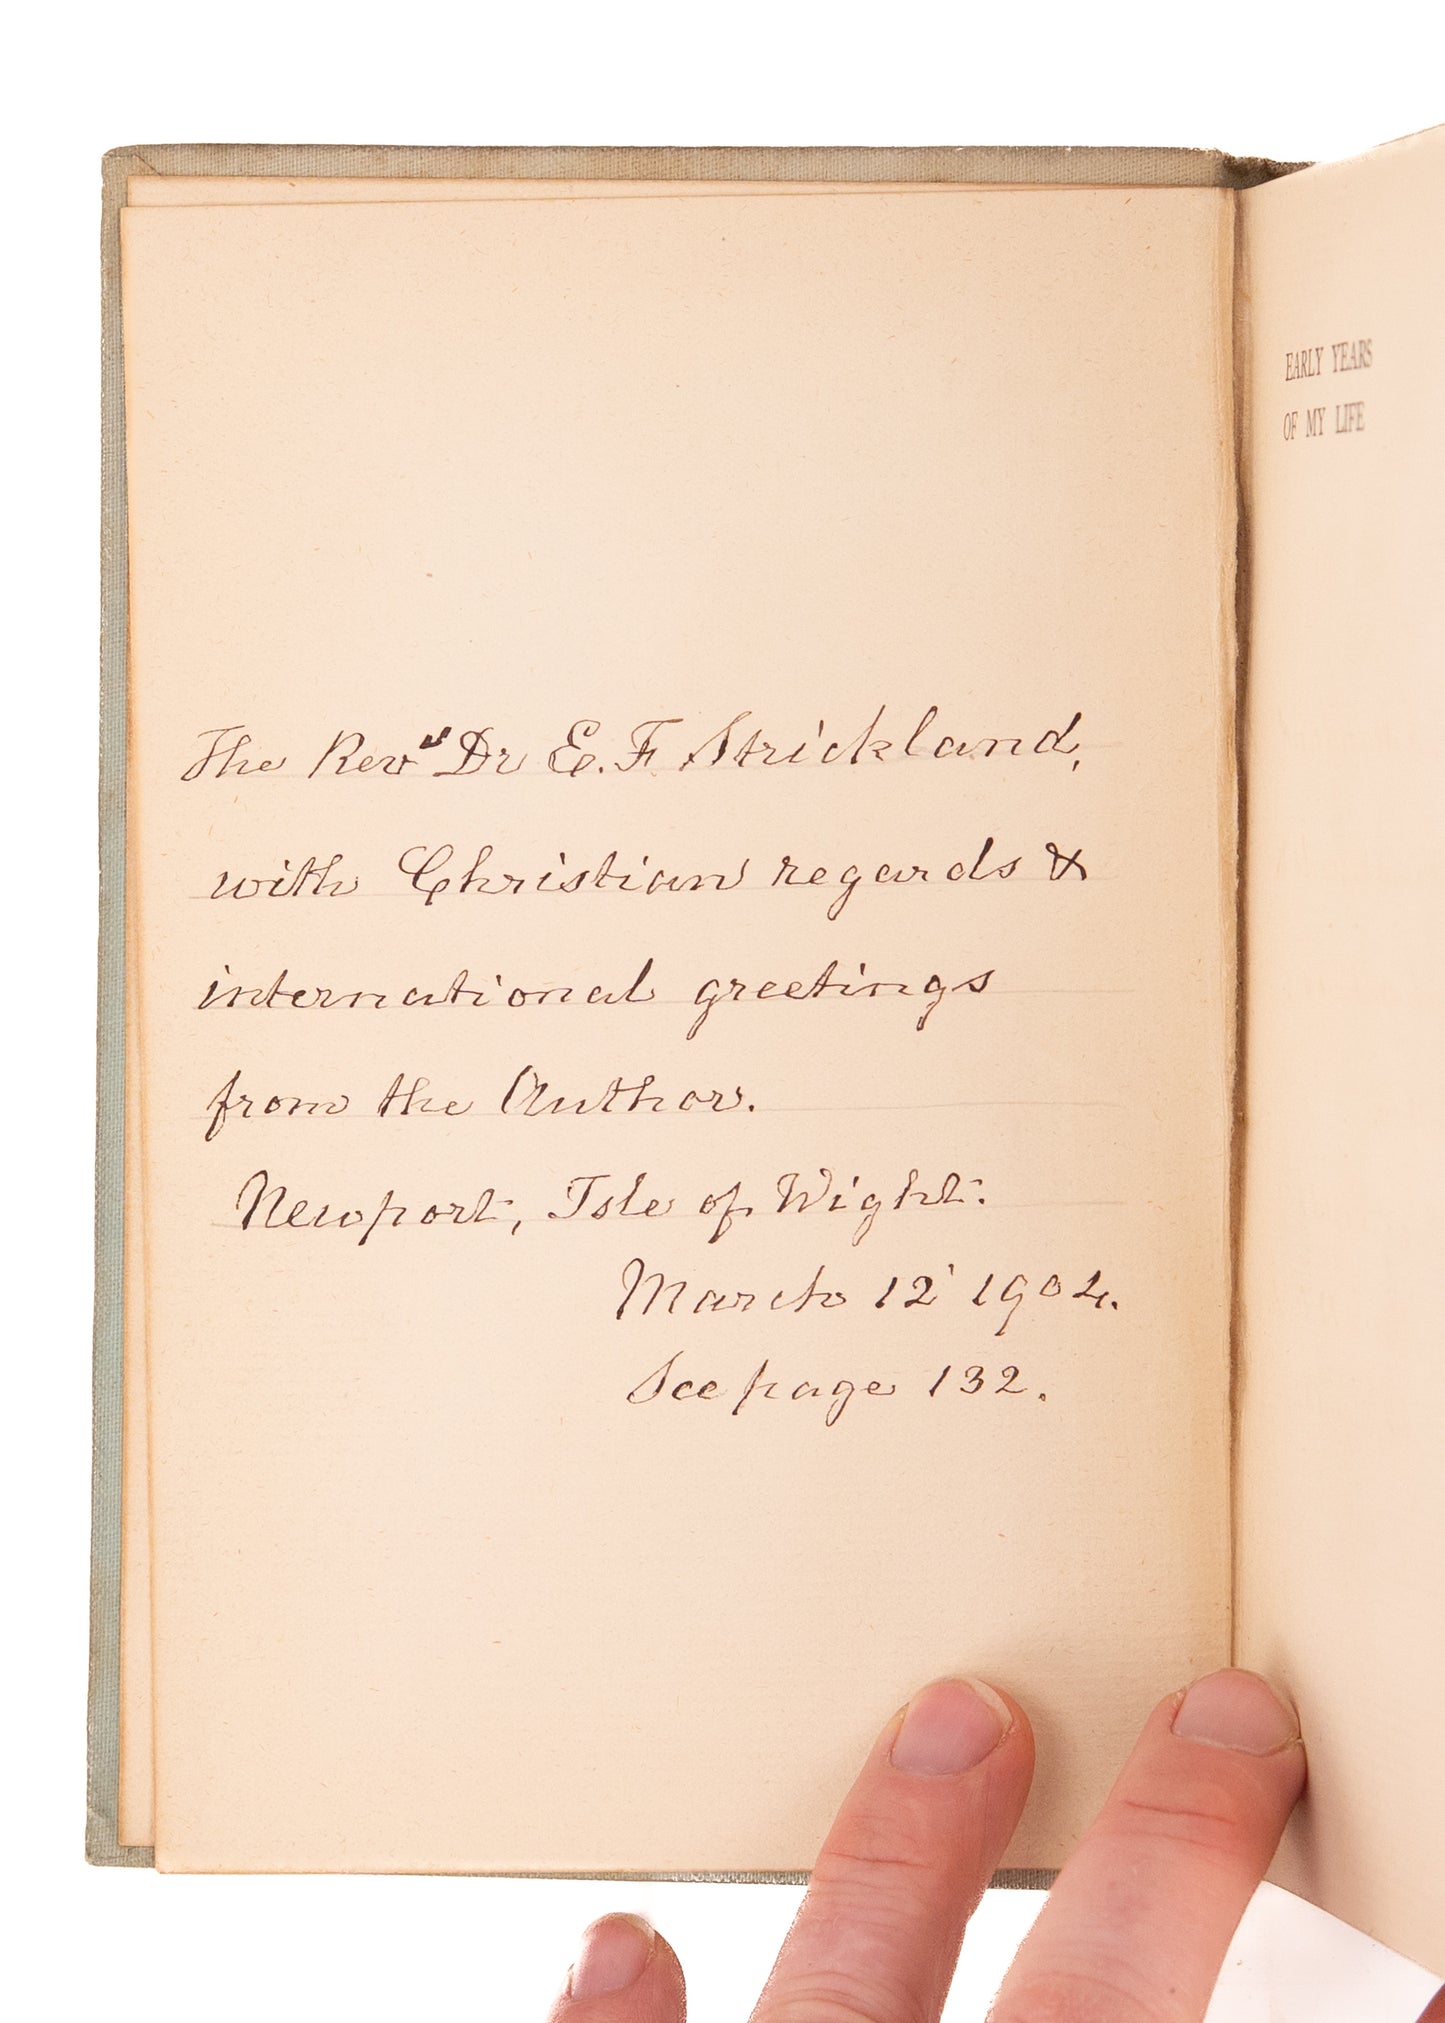 The Revd Dr E. F Strickland,
with Christian regards &
international greetings
from the Author.
Newport, Isle of Wight.
March 12 1904.
See page 132.
EARLY YEARS
OF MY LIFE